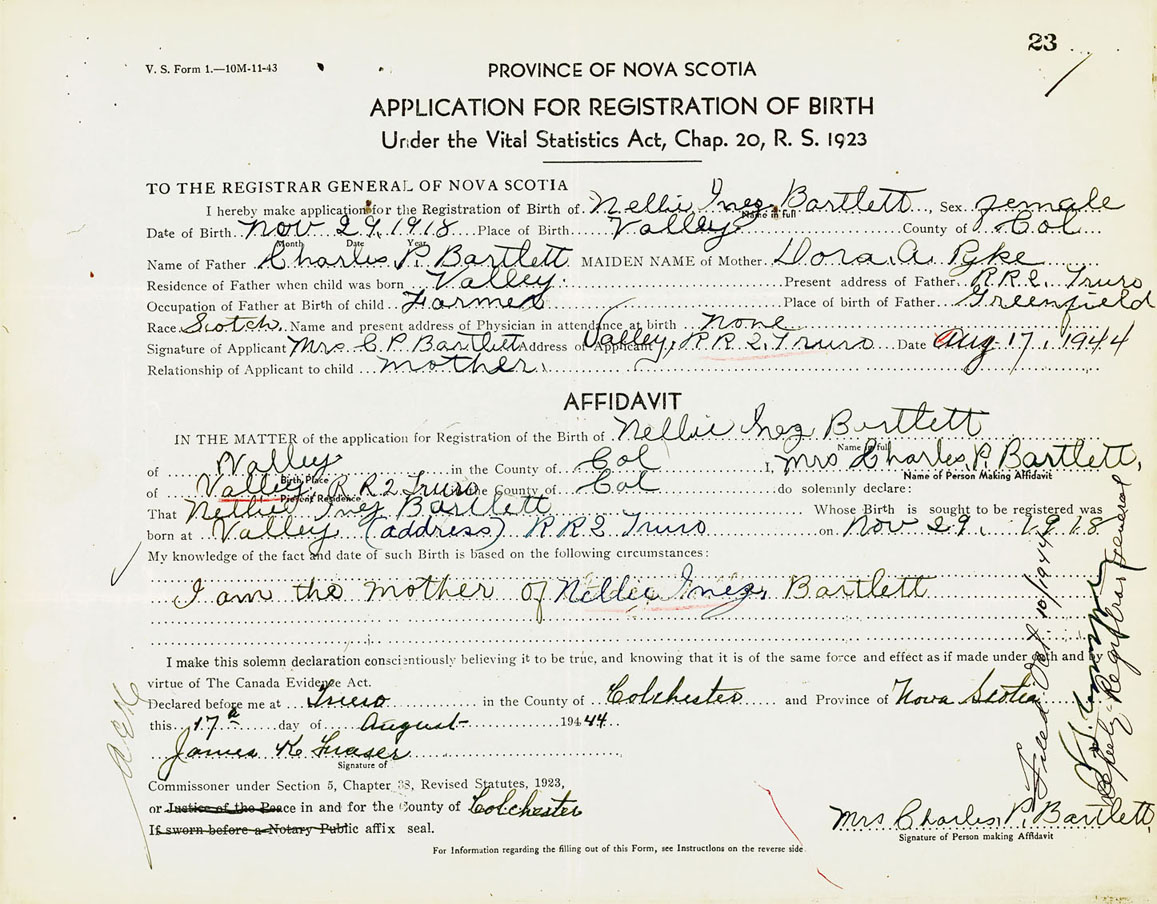 23
V. S. Form 1.—10M-11-43
PROVINCE OF NOVA SCOTIA
APPLICATION FOR REGISTRATION OF BIRTH
Under the Vital Statistics Act, Chap. 20, R. S. 1923
TO THE REGISTRAR GENERAL OF NOVA SCOTIA
I hereby make application for the Registration of Birth of Nellie Inez Bartlett, Sex female
Name in full
Date of Birth Nov 29, 1918 Place of Birth Valley County of Col
Month Date Year
Name of Father Charles P. Bartlett MAIDEN NAME of Mother Dora A. Pyke
Residence of Father when child was born Valley Present address of Father R.R.2. Truro
Occupation of Father at Birth of child Farmer Place of birth of Father Greenfield
Race Scotch Name and present address of Physician in attendance at birth none
Signature of Applicant Mrs C P Bartlett Address of Applicant Valley, R R 2, Truro Date Aug 17, 1944
Relationship of Applicant to child mother.
AFFIDAVIT
IN THE MATTER of the application for Registration of the Birth of Nellie Inez Bartlett
Name in full
of Valley in the County of Col I, Mrs Charles P. Bartlett,
Birth Place Name of Person Making Affidavit
of Valley, R R 2 Truro the County of Col do solemnly declare:
Present Residence
That Nellie Inez Bartlett Whose Birth is sought to be registered was
born at Valley (address) R R 2 Truro on Nov 29, 1918
My knowledge of the fact and date of such Birth is based on the following circumstances:
I am the mother of Nellie Inez, Bartlett
I make this solemn declaration conscientiously believing it to be true, and knowing that it is of the same force and effect as if made under oath and
virtue of The Canada Evidence Act.
Declared before me at Truro in the County of Colchester and Province of Nova Scotia
this 17th day of August 194 44
James K Fraser
Signature of
Commissoner under Section 5, Chapter 38, Revised Statutes, 1923,
or Justice of the Peace in and for the County of Colchester
If sworn before a Notary Public affix seal.
Mrs Charles, P. Bartlett
Signature of Person making Affidavit
For Information regarding the filling out of this Form, see Instructions on the reverse side
Filed Oct 10/1944
Deputy-Registrar General